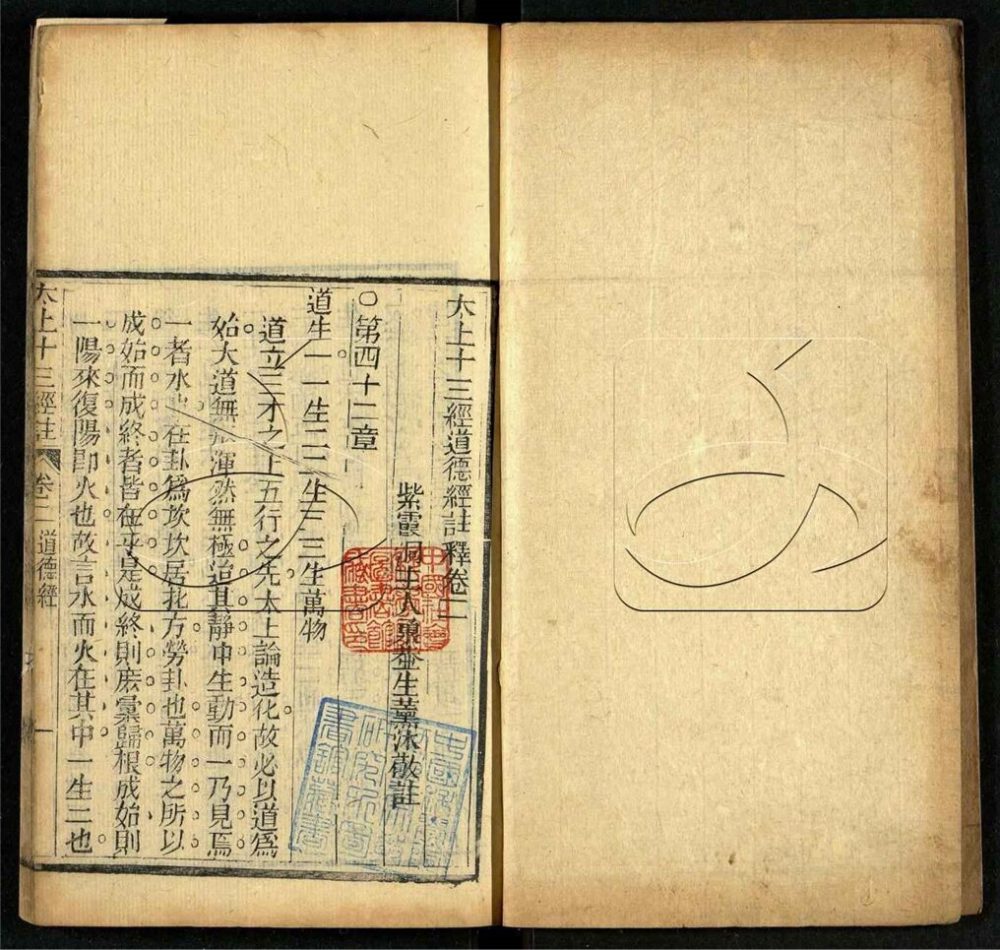 太上十三經道德經註釋卷二
紫霞洞主人 生薰沐敬註
○第四十二章
道生一一生二二生三三生萬物
道立三才之上五行之先太上論造化故必以道爲
始大道無 渾然無極迨其靜中生動而一乃見焉
一者水 在卦爲坎坎居北方勞卦也萬物之所以
成始而成終者皆在乎是成終則庶彙歸根成始則
一陽來復陽卽火也故言水而火在其中一生二也
太上十三經註 卷二 道德經 一